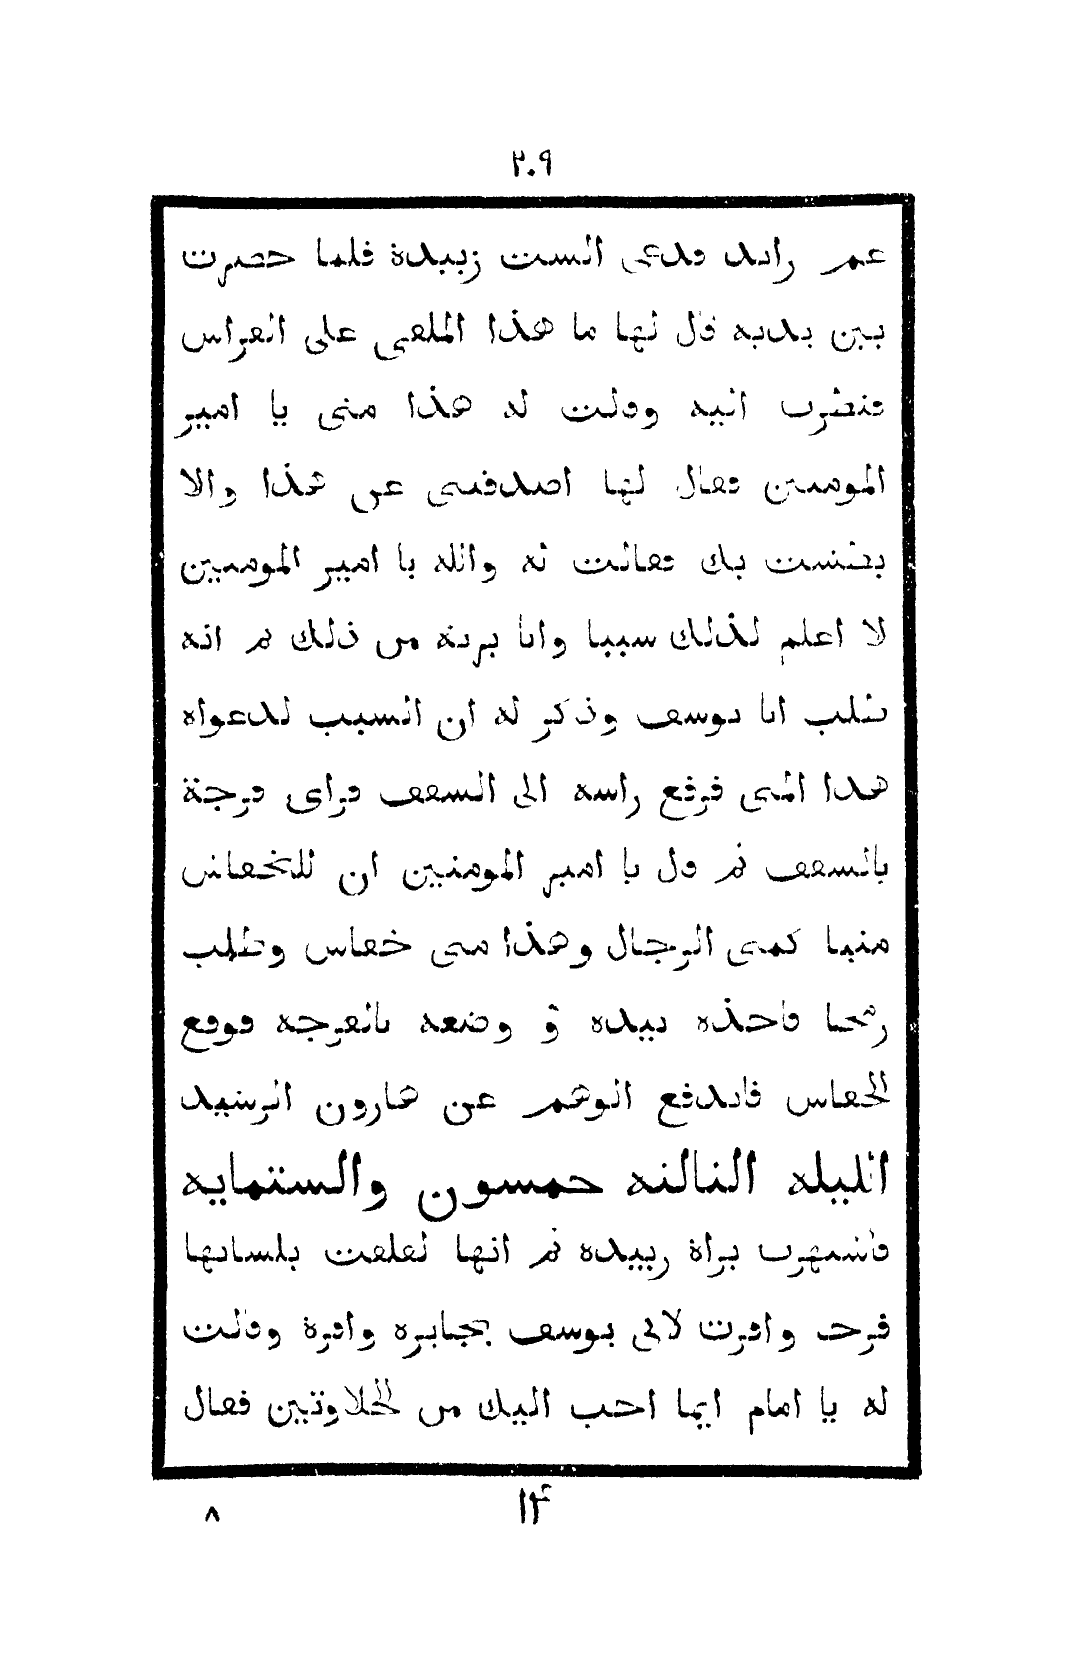 ٢٠٩
غم زايد فدعى الست زبيدة فلما حضرت
بين يديه قال لها ما هذا الملقى على الفراش
فنظرت اليه وقالت له هذا منى يا امير
المومنين فقال لها اصدقينى عن هذا والا
بطشت بك فقالت له والله يا امير المومنين
لا اعلم لذلك سببا وانا برية من ذلك ثم انه
طلب ابا يوسف وذكر له ان السبب لدعواه
هذا المنى فرفع راسه الى السقف فراى فرجة
بالسقف ثم قال يا امير المومنين ان للخفاش
منيا كمنى الرجال وهذا منى خفاش وطلب
رمحا فاخذه بيده و وضعه بالفرجه فوقع
الخفاش فاندفع الوهم عن هارون الرشيد
الليله الثالثه خمسون والستمايه
فاشتهرت براة زبيده ثم انها لعلعت بلسانها
فرحا واقرت لابى يوسف بجايزه وافرة وقالت
له يا امام ايما احب اليك من الحلاوتين فقال
١٤
٨